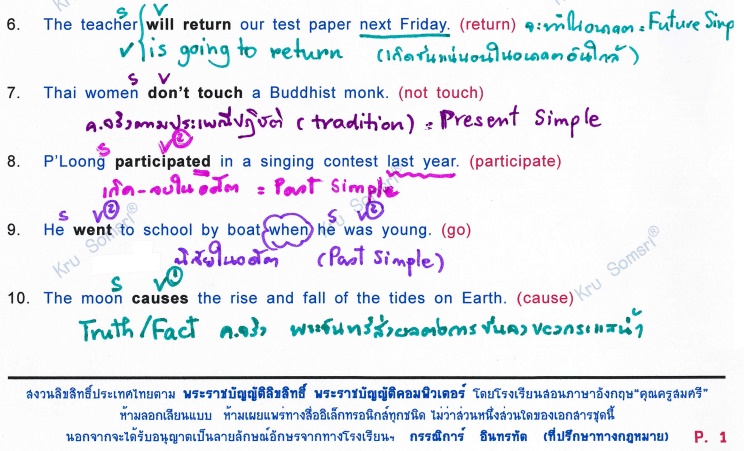 S V
6. The teacher will return our test paper next Friday. (return) จะทำในอนาคต = Future Simp
V is going to return (เกิดขึ้นแน่นอนในอนาคตอันใกล้)
S V
7. Thai women don't touch a Buddhist monk. (not touch)
ค.จริงตามประเพณีปฏิบัติ (tradition) = Present Simple
S V2
8. P'Loong participated in a singing contest last year. (participate)
เกิด-จบในอดีต = Past Simple
S V2 S V2
9. He went to school by boat when he was young. (go)
นิสัยในอดีต (Past Simple)
Kru Somsri®
Kru Somsri®
S V1
10. The moon causes the rise and fall of the tides on Earth. (cause)
Truth/Fact ค.จริง พระจันทร์ส่งผลต่อการขึ้นลงของกระแสน้ำ
สงวนลิขสิทธิ์ประเทศไทยตาม พระราชบัญญัติลิขสิทธิ์ พระราชบัญญัติคอมพิวเตอร์ โดยโรงเรียนสอนภาษาอังกฤษ"คุณครูสมศรี"
ห้ามลอกเลียนแบบ ห้ามเผยแพร่ทางสื่ออิเล็กทรอนิกส์ทุกชนิด ไม่ว่าส่วนหนึ่งส่วนใดของเอกสารชุดนี้
นอกจากจะได้รับอนุญาตเป็นลายลักษณ์อักษรจากทางโรงเรียนฯ กรรณิการ์ อินทรทัต (ที่ปรึกษาทางกฎหมาย) P. 1